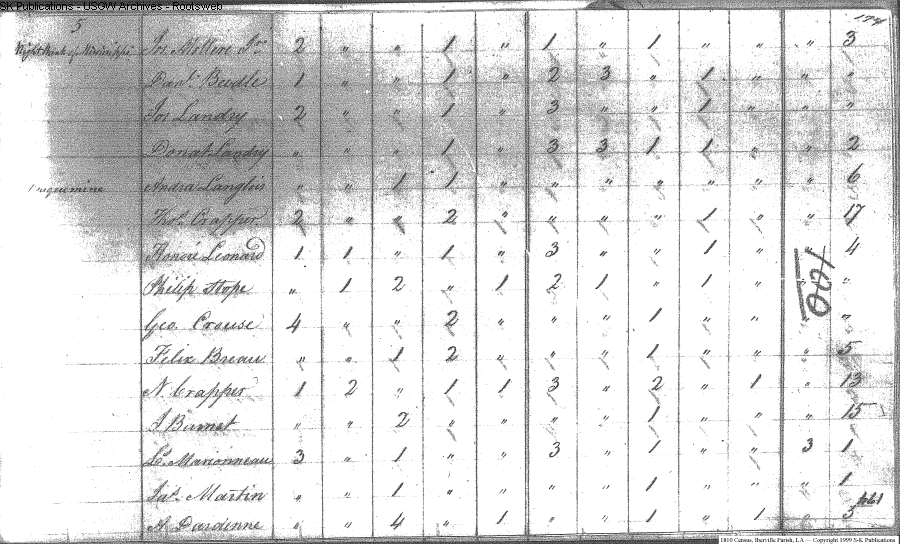 SK Publications - USGW Archives - Rootsweb
5 174
Right Bank of Mississippi Jos Mollere Jr 2 " " 1 " 1 " 1 " " " 3
Danl. Beedle 1 " " 1 " 2 3 " 1 " " "
Jos Landry 2 " " 1 " 3 " " 1 " " "
Donat Landry " " " 1 " 3 3 1 1 " " 2
Andra Langlois " " 1 1 " " " " " " " 6
Thos. Crapper 2 " " 2 " " " " 1 " " 17
Honoré Leonard 1 1 " 1 " 3 " " 1 " " 4
Philip Hope " 1 2 " 1 2 1 " 1 " " "
100
Geo. Crouse 4 " " 2 " " " 1 " " " "
Felix Breau " " 1 2 " " " 1 " " " 5
N. Crapper 1 2 " 1 1 3 " 2 " 1 " 13
J Burnet " " 2 " " " " 1 " " " 15
Ls. Marionneau 3 " 1 " " 3 " 1 " " 3 1
Jas. Martin " " 1 " " " " 1 " " " 1
A. Dardenne " " 4 " 1 " " 1 " 1 " 3
1810 Census, Iberville Parish, LA — Copyright 1999 S-K Publications